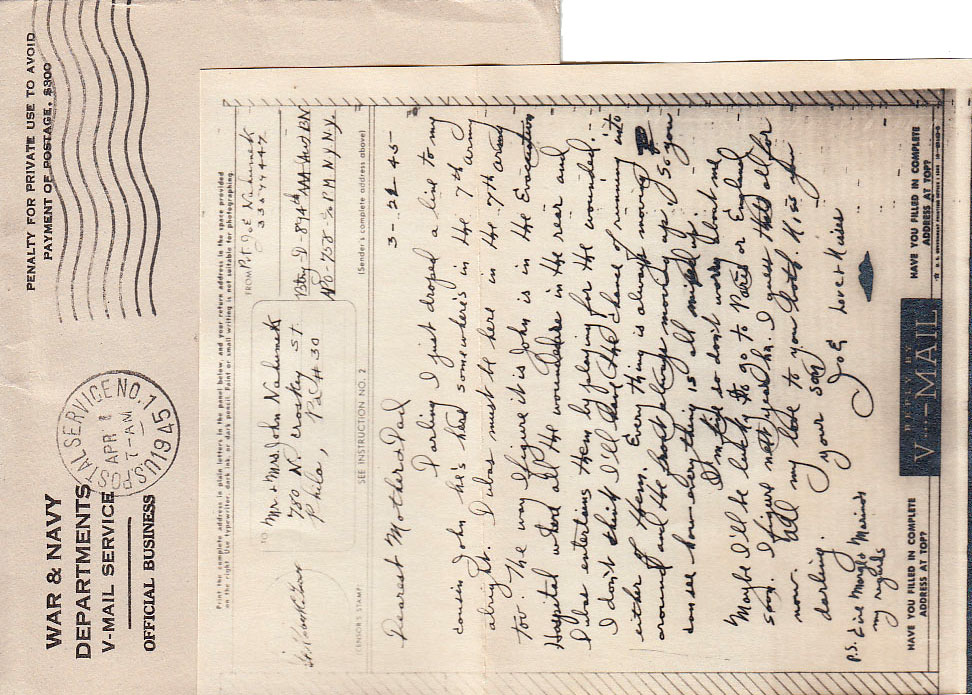 WAR & NAVY
DEPARTMENTS
V-MAIL SERVICE
OFFICIAL BUSINESS
U.S. POSTAL SERVICE NO. 1
APR
7-AM
1945
PENALTY FOR PRIVATE USE TO AVOID
PAYMENT OF POSTAGE, $300
Print the complete address in plain letters in the panel below, and your return address in the space provided
on the right. Use typewriter, dark ink, or dark pencil. Faint or small writing is not suitable for photographing.
TO
Mr. + Mrs. John Nahumek
780 N Croskey St.
Phila, Pa #30
FROM
Pvt. Joe Nahumek
33677447
Btry-D-894th AAA AW BN
APO-758 c/o P.M. N.Y. N.Y.
CENSOR'S STAMP
SEE INSTRUCTION NO. 2
(Sender's complete address above)
3-22-45-
Dearest Mother & Dad
Darling I just droped a line to my
cousin John he's here somewhere's in the 7th army
alright. Lubas must be here in the 7th army
too. The way I figure it is John is in the Evacuation
Hospital where all the wounded are in the rear and
Lubas entertains them by playing for the wounded.
I don't think I'll have the chance of running into
either of them. Every thing is always moving
around and the front always moving up. So you
can see how everything is all mixed up.
I'm fine so don't worry about me
Maybe I'll be lucky to go to Paris or England
soon. I figure next month. I guess that's all for
now. All my love to you both. Kiss you
darling.
Your son
Joe
Love + Kisses
P.S. Give Marge + Marinos
my regards
HAVE YOU FILLED IN COMPLETE
ADDRESS AT TOP?
REPLY BY
V···–MAIL
HAVE YOU FILLED IN COMPLETE
ADDRESS AT TOP?